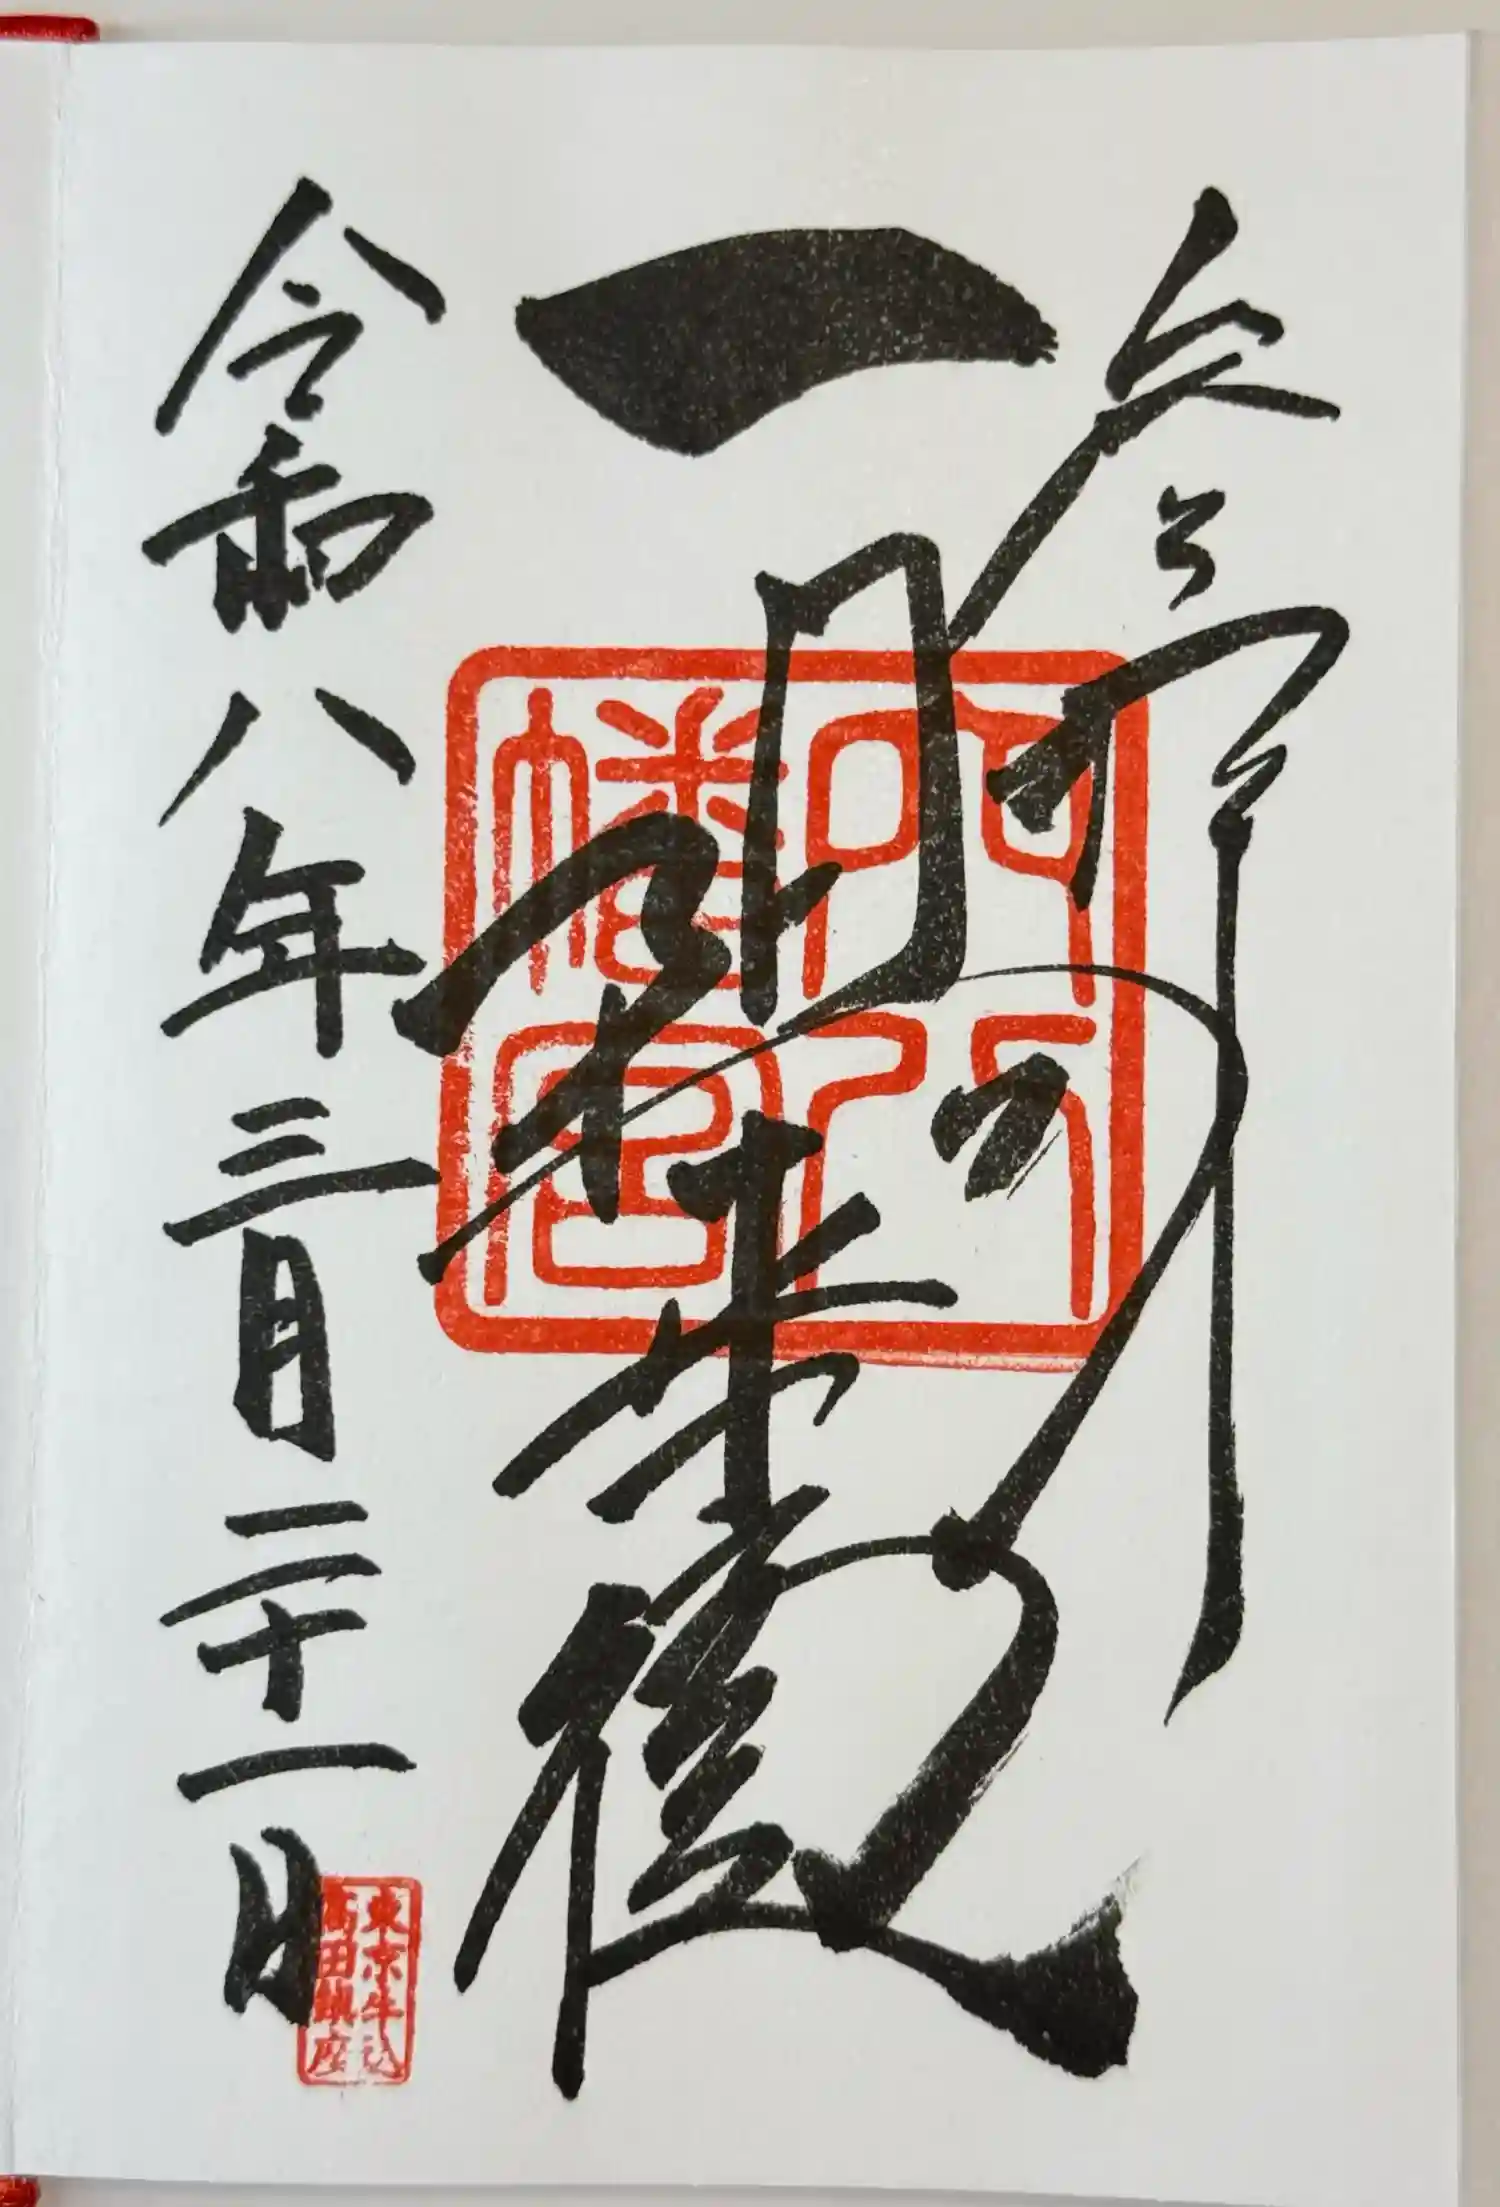 一陽来復
穴八
幡宮
令和八年三月二十一日
東京牛込
高田鎮座